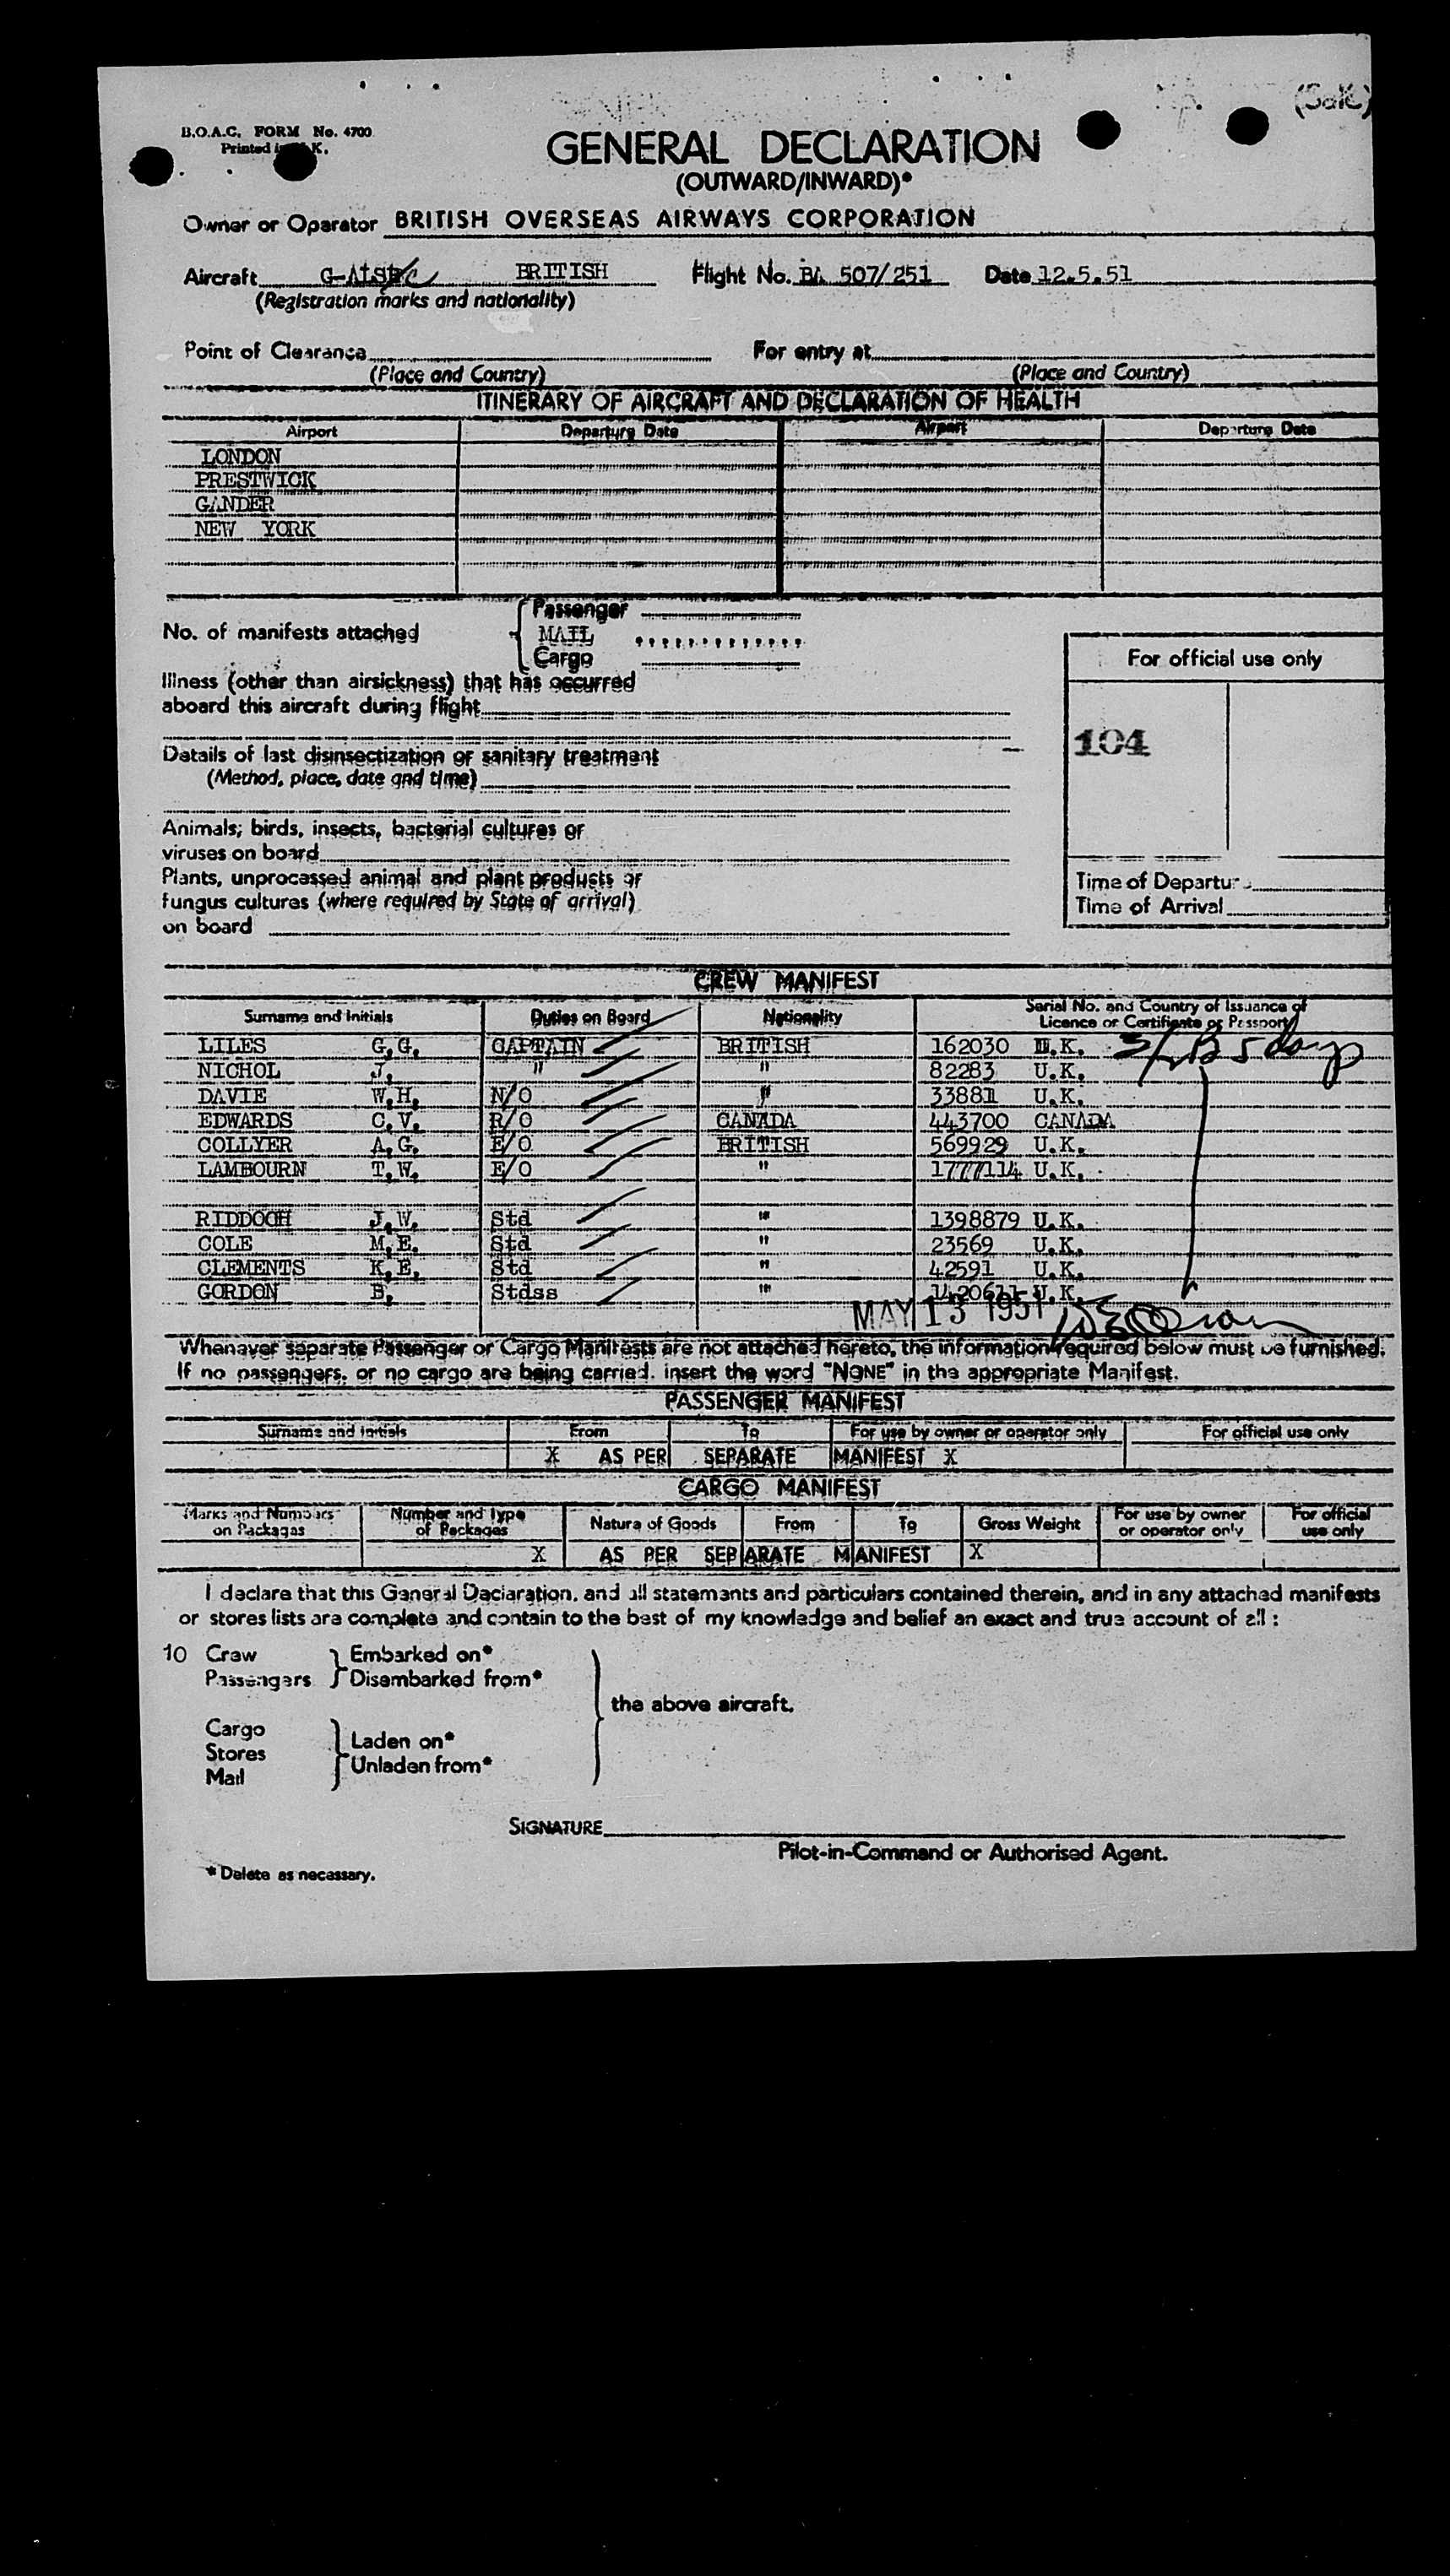 (Sale)
B.O.A.C. FORM No. 4700
Printed in U.K.
GENERAL DECLARATION
(OUTWARD/INWARD)*
Owner or Operator BRITISH OVERSEAS AIRWAYS CORPORATION
Aircraft BRITISH Flight No. BA 507/251 Date 12.5.51
(Registration marks and nationality)
Point of Clearance For entry at
(Place and Country) (Place and Country)
ITINERARY OF AIRCRAFT AND DECLARATION OF HEALTH
Airport Departure Date Airport Departure Date
LONDON
PRESTWICK
GANDER
NEW YORK
Passenger
No. of manifests attached MAIL
Cargo
For official use only
Illness (other than airsickness) that has occurred
aboard this aircraft during flight
104
Details of last disinsectization or sanitary treatment
(Method, place, date and time)
Animals, birds, insects, bacterial cultures or
viruses on board
Plants, unprocessed animal and plant products or
fungus cultures (where required by State of arrival)
on board
Time of Departure
Time of Arrival
CREW MANIFEST
Surname and Initials Duties on Board Nationality Serial No. and Country of Issuance of Licence or Certificate or Passport
LILES G.G. CAPTAIN BRITISH 162030 U.K. 5 days
NICHOL J. " " 82283 U.K.
DAVIE W.H. N/O " 33881 U.K.
EDWARDS C.V. R/O CANADA 443700 CANADA
COLLYER A.G. E/O BRITISH 569929 U.K.
LAMBOURN T.W. E/O " 1777114 U.K.
RIDDOCH J.W. Std " 1398879 U.K.
COLE M.E. Std " 23569 U.K.
CLEMENTS K.E. Std " 42591 U.K.
GORDON B. Stdss " 1420611 U.K.
MAY 13 1951
Whenever separate Passenger or Cargo Manifests are not attached hereto, the information required below must be furnished.
If no passengers, or no cargo are being carried, insert the word "NONE" in the appropriate Manifest.
PASSENGER MANIFEST
Surname and Initials From To For use by owner or operator only For official use only
X AS PER SEPARATE MANIFEST X
CARGO MANIFEST
Marks and Numbers on Packages Number and Type of Packages Nature of Goods From To Gross Weight For use by owner or operator only For official use only
X AS PER SEPARATE MANIFEST X
I declare that this General Declaration, and all statements and particulars contained therein, and in any attached manifests
or stores lists are complete and contain to the best of my knowledge and belief an exact and true account of all :
10 Crew Embarked on*
Passengers Disembarked from*
the above aircraft.
Cargo
Stores Laden on*
Mail Unladen from*
SIGNATURE
Pilot-in-Command or Authorised Agent.
* Delete as necessary.